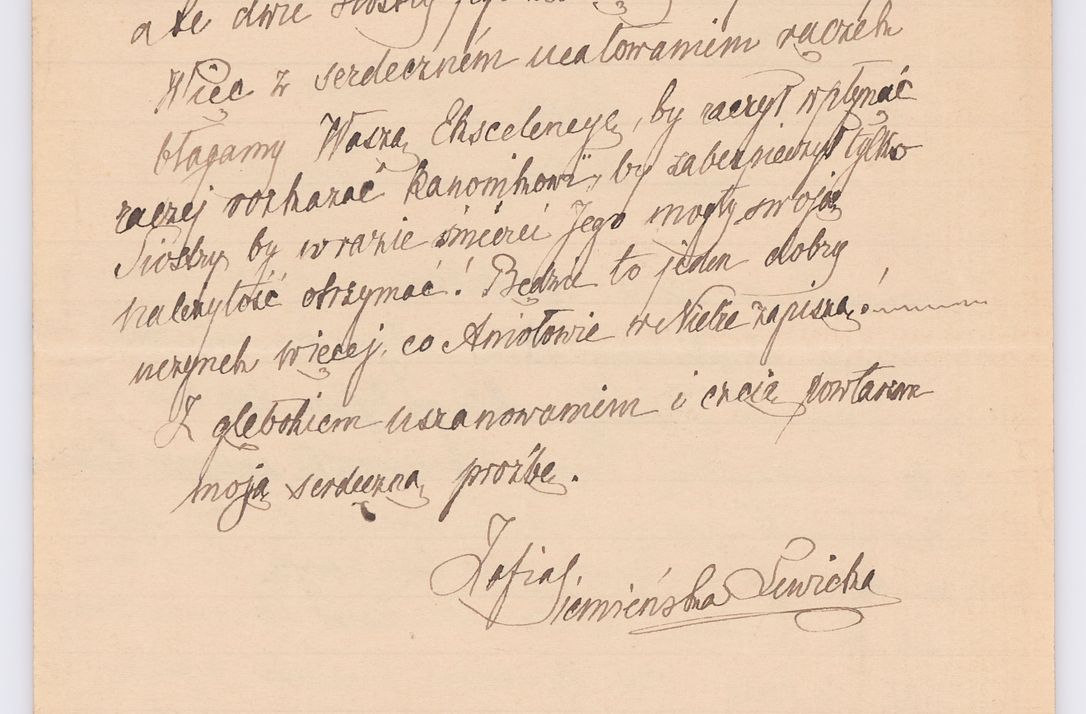 a te dwie siostry jego
Więc z serdeczném ucałowaniem rączek
błagamy Waszą Ekscelencyę, by raczył wpłynąć
raczej rozkazać kanonikowi, by zabezpieczył tylko
Siostry by w razie śmierci Jego mogły swoją
należytość otrzymać! Będzie to jeden dobry
uczynek więcej, co Aniołowie w Niebie zapiszą!
Z głębokiem uszanowaniem i czcią powtarzam
moją serdeczną prożbę.
Zofia Siemieńska Lewicka